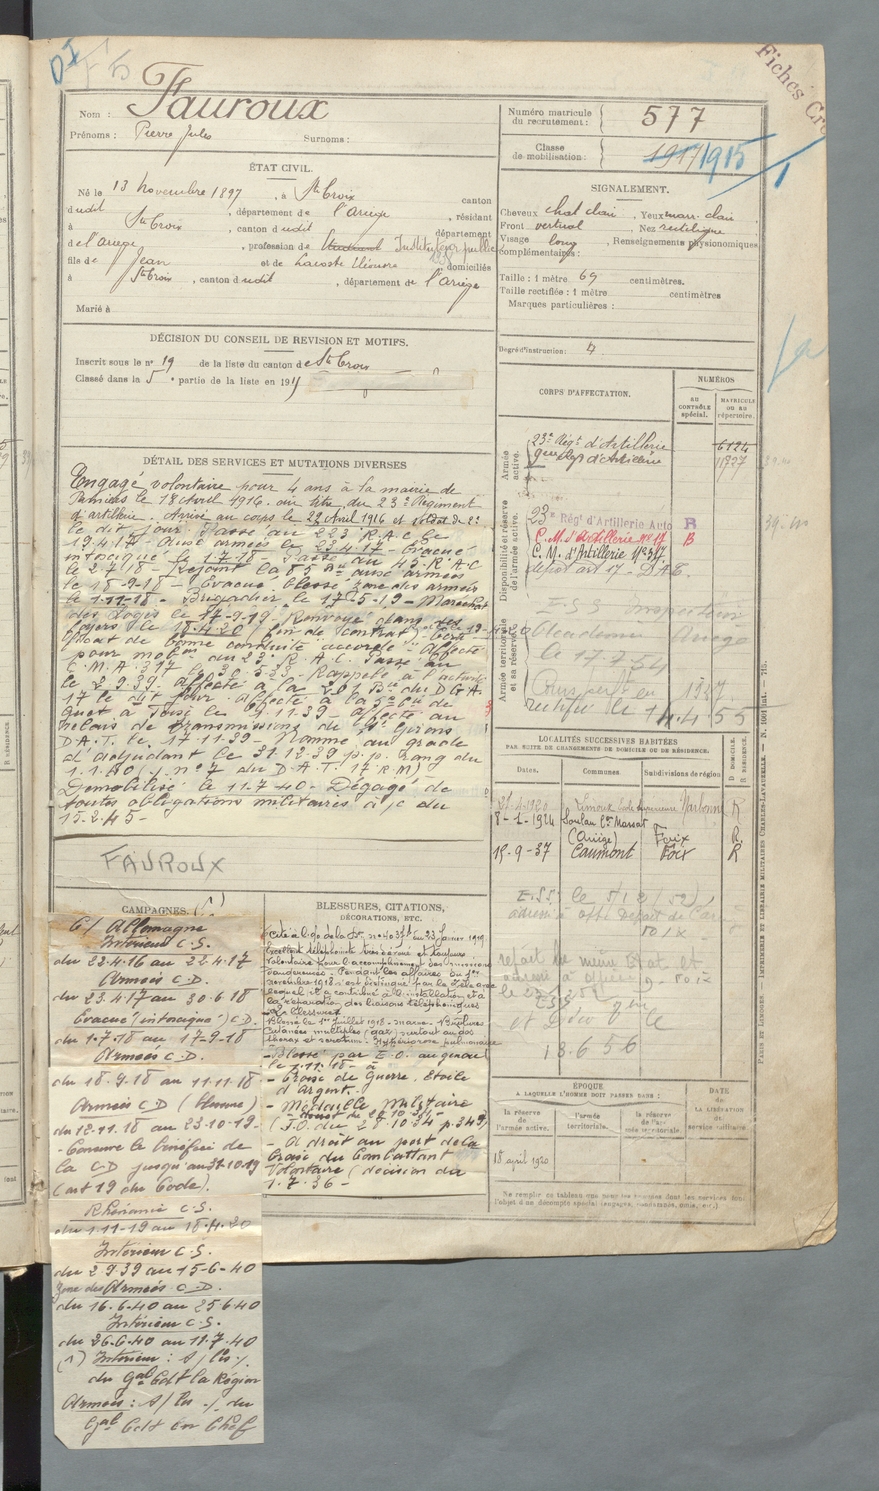 Fiches Cr
Nom : Fauroux
Prénoms : Pierre Jules Surnoms :
Numéro matricule du recrutement : 577
Classe de mobilisation : 1917 1915
ÉTAT CIVIL.
Né le 13 novembre 1897, à Ste Croix canton
dudit, département de l'Ariège, résidant
à Ste Croix, canton dudit département
de l'Ariège, profession de Étudiant Instituteur public
fils de Jean et de Lacoste Eléonore domiciliés
à Ste Croix, canton dudit, département de l'Ariège
Marié à
SIGNALEMENT.
Cheveux chat clair, Yeux marr. clair
Front vertical, Nez rectiligne
Visage long, Renseignements physionomiques
complémentaires :
Taille : 1 mètre 69 centimètres.
Taille rectifiée : 1 mètre centimètres
Marques particulières :
Degré d'instruction : 4
DÉCISION DU CONSEIL DE REVISION ET MOTIFS.
Inscrit sous le n° 19 de la liste du canton de Ste Croix
Classé dans la 5e partie de la liste en 191
DÉTAIL DES SERVICES ET MUTATIONS DIVERSES
Engagé volontaire pour 4 ans à la mairie de
Pamiers le 18 Avril 1916 au titre du 23e Régiment
d'artillerie. Arrivé au corps le 22 Avril 1916 et soldat de 2e
le dit jour. Passé au 223 R.A.C. le
19.4.17 - aux armées le 23.4.17 - Evacué
intoxiqué le 1.7.18 - Passé au 45 R.A.C
le 2.7.18 - Rejoint la 85 Bie aux armées
le 18-9-18 - Evacué blessé zone des armées
le 1.11-18 - Brigadier le 17-5-19 - Maréchal
des Logis le 17-9-19. Renvoyé dans ses
foyers le 18.4.20 (fin de contrat)
de bonne conduite accordé. Affecté
pour mobon au 23e R.A.C. Passé au
C.M.A. 317 le
le 2.9.39. affecté à la 261 Bie du D.G.A.
17 le dit jour. affecté à la 5e Cie de
guet à Foix le 1.11.39 - affecté au
relais de transmissions de St Girons
D.A.T. le 17.11.39 - Nommé au grade
d'adjudant le 31.12.39 p.p. rang du
1.1.40 (J. n° 7 du D.A.T. 17 R.M)
Démobilisé le 11.7.40 - Dégagé de
toutes obligations militaires à/c du
15.2.45 -
FAUROUX
CORPS D'AFFECTATION.
NUMÉROS
AU CONTRÔLE spécial.
MATRICULE OU AU répertoire.
Armée active.
23e Régt d'Artillerie 6124
11727
Disponibilité et réserve de l'armée active.
23e Rég' d'Artillerie Auto B
C.M. d'Artillerie N° 17 B
C. M. d'Artillerie N° 317
dépôt art 17 - D.A.T.
Armée territoriale et sa réserve.
E.S.S Inspecteur
Académie Ariège
le 17.7.54
rectifié le 14.4.55
LOCALITÉS SUCCESSIVES HABITÉES
PAR SUITE DE CHANGEMENTS DE DOMICILE OU DE RÉSIDENCE.
Dates. Communes. Subdivisions de région D DOMICILE. R RÉSIDENCE.
27-4-1920 Limoux Ecole supérieure Narbonne R
8-1-1924 Soulan Cton Massat
(Ariège) Foix R.
15-9-37 Caumont Foix R
E.S.S. le 5/12/52
refait le même État et
18.6 56
CAMPAGNES. (1)
C/ Allemagne
Intérieur C.S.
du 22.4.16 au 22.4.17
Armées C.D.
du 23.4.17 au 30.6.18
Evacué (intoxiqué) C.D.
du 1.7.18 au 17-9-18
Armées C.D.
du 18.9.18 au 11.11.18
Armées C.D (blessé)
du 12.11.18 au 23.10.19 -
- Conserve le bénéfice de
la C.D jusqu'au 31.10.19
(art 19 du Code).
Rhénanie C.S.
du 1.11-19 au 18.4.20
Intérieur C.S.
du 2 9.39 au 15-6-40
Zone des Armées C.D.
du 16.6.40 au 25.6.40
Intérieur C.S.
du 26.6.40 au 11.7.40
(1) Intérieur : s/ les
du Gal Cdt la Région
Armées : s/ les du
Gal Cdt en Chef
BLESSURES, CITATIONS,
DÉCORATIONS, ETC.
Cité à l'o/ de la D.I. n° 403 du 23 Janvier 1919.
Excellent téléphoniste très dévoué et toujours
volontaire pour l'accomplissement des missions
dangereuses. Pendant les affaires du 1er
novembre 1918 s'est distingué par le zèle avec
lequel il a contribué à l'installation et à
la réparation des liaisons téléphoniques
Blessures
Blessé le 1er Juillet 1918 - marne - Brûlures
cutanées multiples (gaz) surtout au dos
thorax et scrotum - Hypérirose pulmonaire
- Blessé par E.O. au genou
le 1.11.18 -
- Croix de Guerre. Etoile
d'Argent.
- Médaille Militaire
(J.O. du 28.10.34 p.349)
- A droit au port de la
Croix du Combattant
Volontaire (décision du
1.7.36 -
ÉPOQUE
A LAQUELLE L'HOMME DOIT PASSER DANS :
DATE DE LA LIBÉRATION DU service militaire
la réserve de l'armée active. l'armée territoriale. la réserve de l'armée territoriale.
18 avril 1920
Ne remplir ce tableau que pour les hommes dont les services font
l'objet d'un décompte spécial (engagés, condamnés, omis, etc.)
PARIS ET LIMOGES. — IMPRIMERIE ET LIBRAIRIE MILITAIRES CHARLES-LAVAUZELLE.